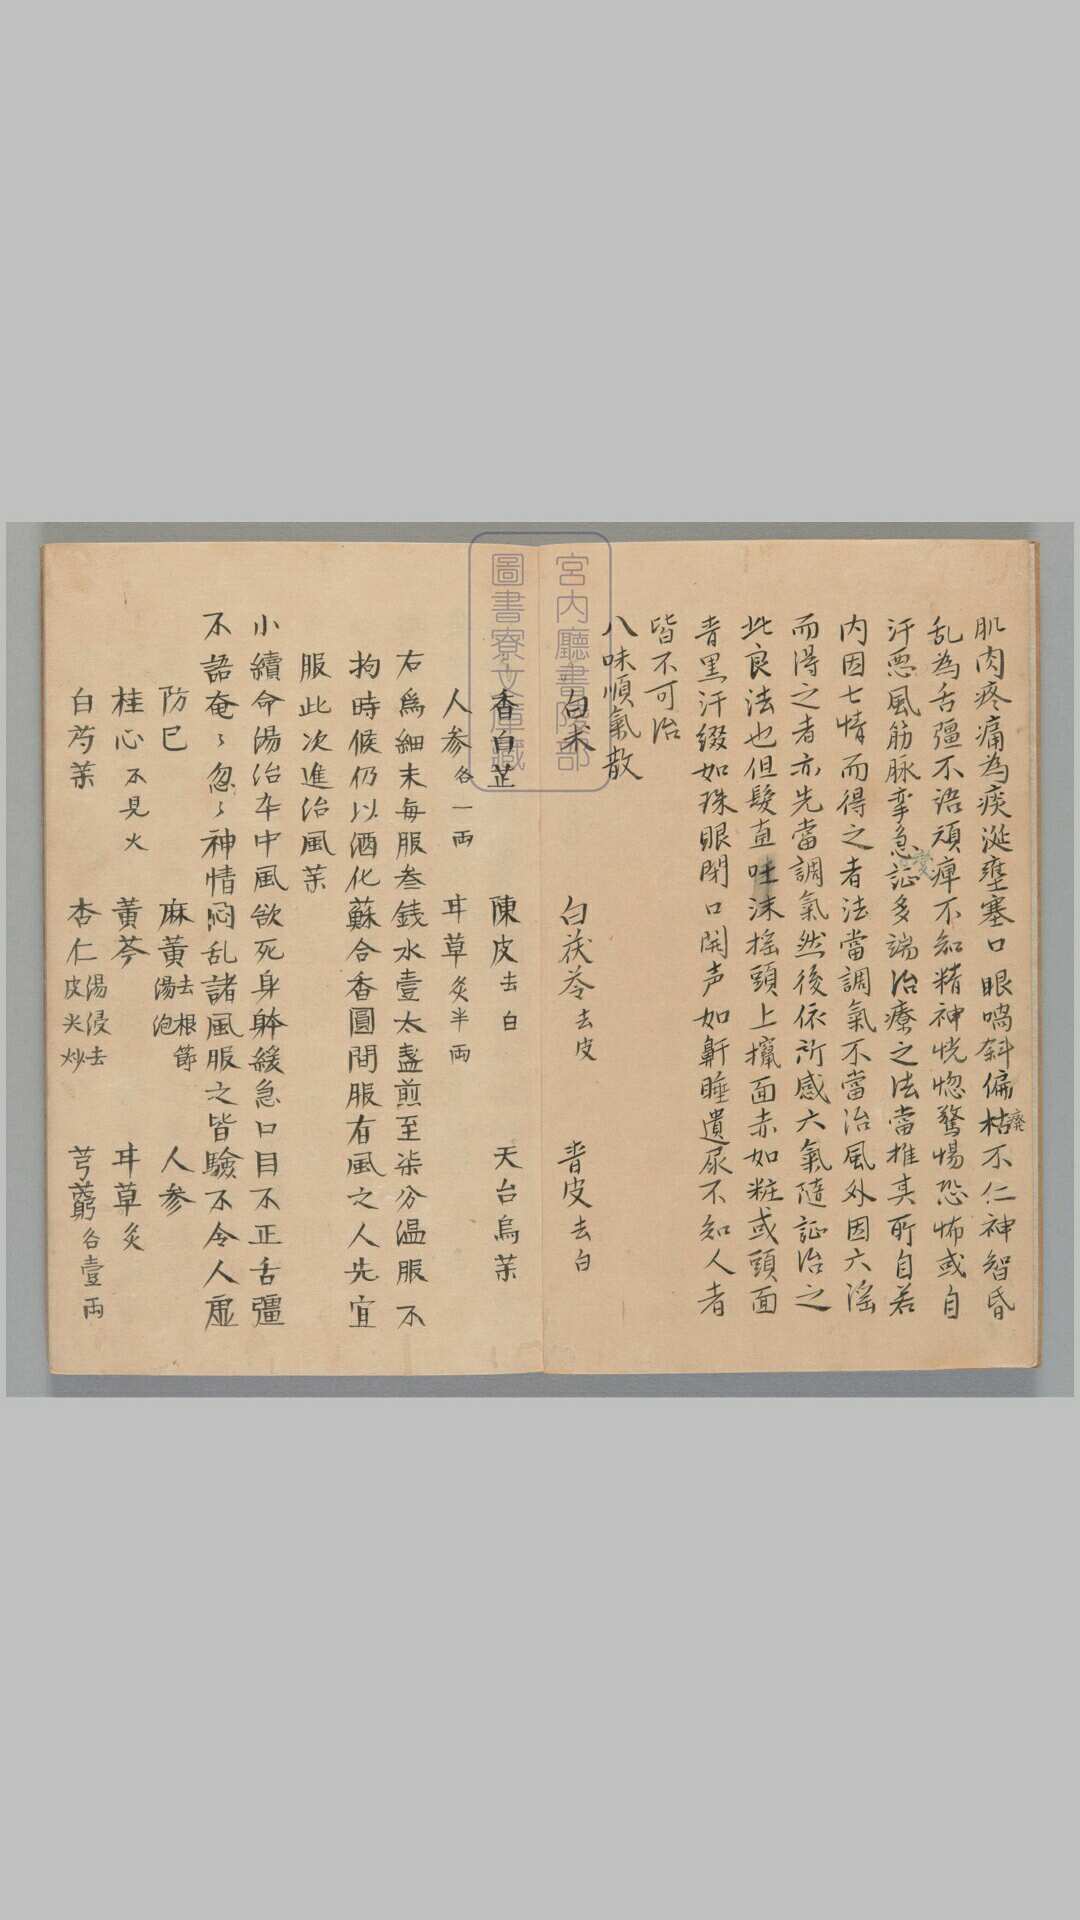 肌肉疼痛為痰涎壅塞口眼喎斜偏枯不仁神智昏
廃
乱為舌彊不語頑痺不知精神恍惚驚惕恐怖或自
汗悪風筋脉挛急証多端治療之法當推其所自若
内因七情而得之者法當調氣不當治風外因六滛
而得之者亦先當調氣然後依所感六氣随証治之
此良法也但髮直吐沫揺頭上攛面赤如粧或頭面
青黒汗綴如珠眼閉口開声如鼾睡遺尿不知人者
皆不可治
八味順氣散
白朮 白茯苓去皮 青皮去白
香白芷 陳皮去白 天台烏茱
人参各一両 耳草炙半両
右爲細末每服叁錢水壹大盞煎至柒分温服不
拘時候仍以酒化蘇合香圓間服有風之人先宜
服此次進治風茱
小續命湯治卒中風欲死身躰緩急口目不正舌彊
不語奄〻忽〻神情悶乱諸風服之皆驗不令人虚
防巳 麻黄去根節湯泡 人参
桂心不見火 黄芩 耳草炙
白芍茱 杏仁湯浸去皮尖炒 芎藭各壹両
宮内廳書陵部
圖書寮文庫藏